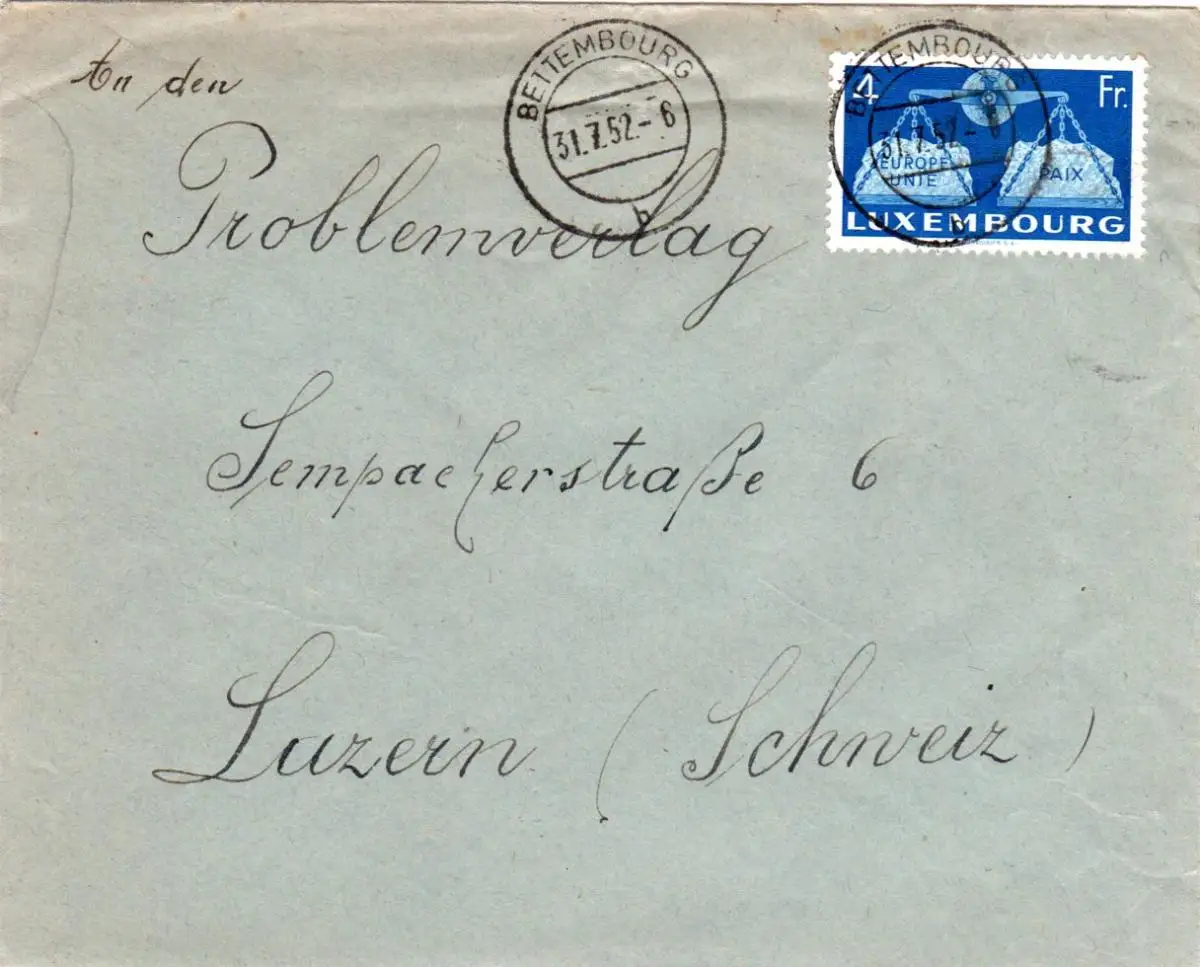 An den
Problemverlag
Sempacherstraße 6
Luzern (Schweiz)
BETTEMBOURG
31.7.52.-6
b
BETTEMBOURG
31.7.52.-6
b
4 Fr.
EUROPE
UNIE
PAIX
LUXEMBOURG